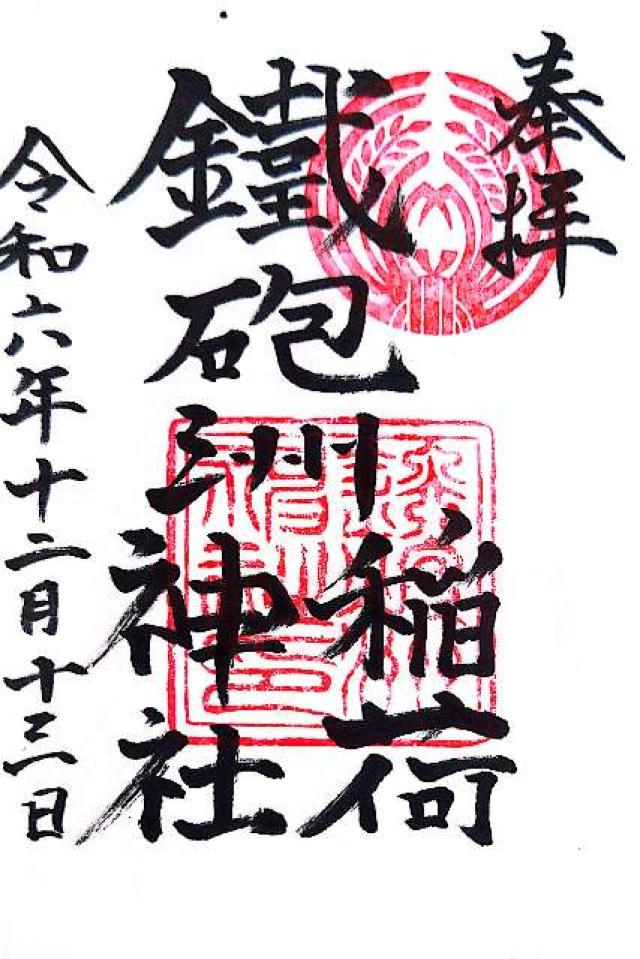 奉拝
鐵砲洲
稲荷
神社
令和六年十二月十三日